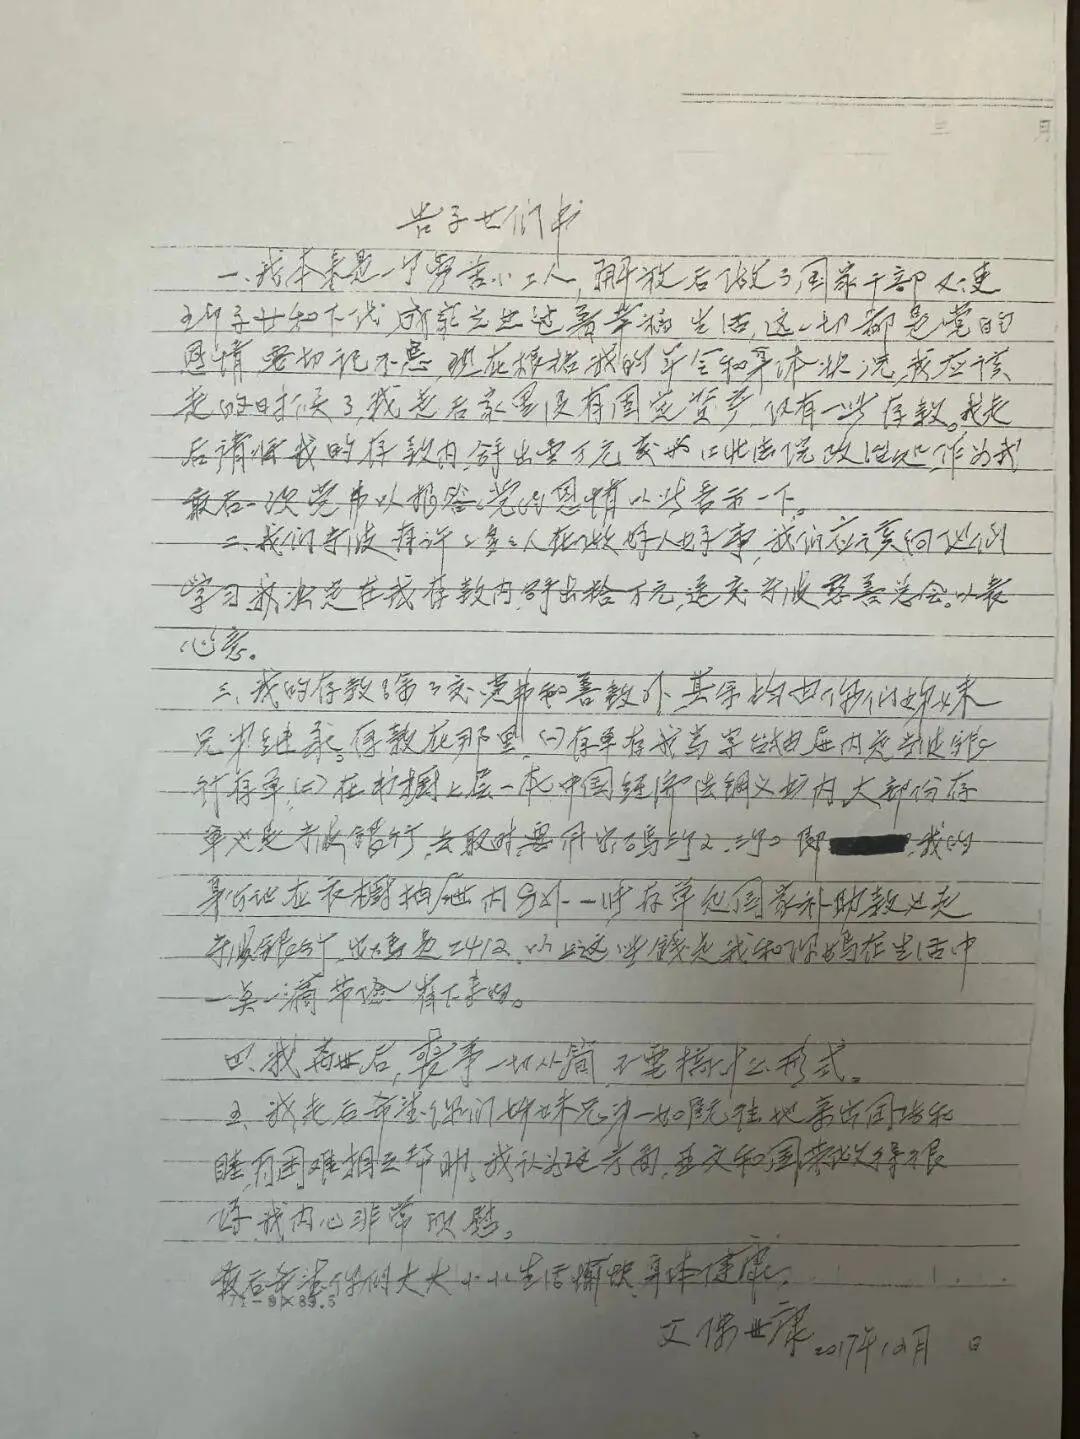 三 月
告子女们书
一、我本来是一个贫苦小工人,解放后做了国家干部及使
子女和下代成家立业过着幸福生活,这一切都是党的
恩情要切记不忘,现在根据我的年令和身体状况,我应该
走的时候了,我走后家里没有固定资产,仅有一些存款。我走
后请你我的存款内,拿出壹万元交江北法院政治处,作为我
最后一次党费以报答党的恩情以此表示一下。
二、我们宁波有许多人在做好人好事,我们应该向他们
学习我决定在我存款内拿出拾万元,送交宁波慈善总会。以表
心意。
三、我的存款除了交党费和善款外,其余均由你们姊妹
兄弟继承。存款在那里,(一)存单在我写字台抽屉内是宁波银
行存单,(二)在书橱上层一本中国经济法讲义书内,大部份存
单也是宁波银行,去取时要用密码 即 我的
身份证在衣橱抽屉内另外一些存单包国家补助款也是
宁波银行,密码是2412,以上这些钱是我和你妈在生活中
一点一滴节俭省下来的。
四、我离世后,丧事一切从简,不要搞什么形式。
五、我走后希望你们姊妹兄弟一如既往地亲密团结和
睦,有困难相互帮助,我认为这方面,亚文和国荣做得很
好,我内心非常欣慰。
最后希望你们大大小小生活愉快,身体健康。
71-9)×89.5
父 保世康 2017年10月 日